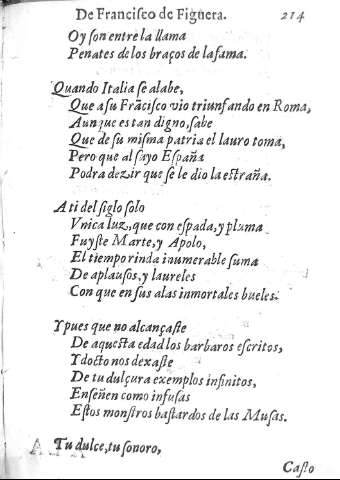 De Francisco de Figuera. 214
Oy ſon entre la llama
Penates de los braços de la fama.
Quando Italia ſe alabe,
Que a ſu Frãciſco vio triunfando en Roma,
Aunque es tan digno, ſabe
Que de ſu miſma patria el lauro toma,
Pero que al ſayo Eſpaña
Podra dezir que ſe le dio la eſtraña.
A ti del ſiglo ſolo
Vnica luz, que con eſpada, y pluma
Fuyſte Marte, y Apolo,
El tiempo rinda inumerable ſuma
De aplauſos, y laureles
Con que en ſus alas inmortales bueles.
Y pues que no alcançaſte
De aqueſta edad los barbaros eſcritos,
Y docto nos dexaſte
De tu dulçura exemplos infinitos,
Enſeñen como infuſas
Eſtos monſtros baſtardos de las Muſas.
Tu dulce, tu ſonoro,
Caſto